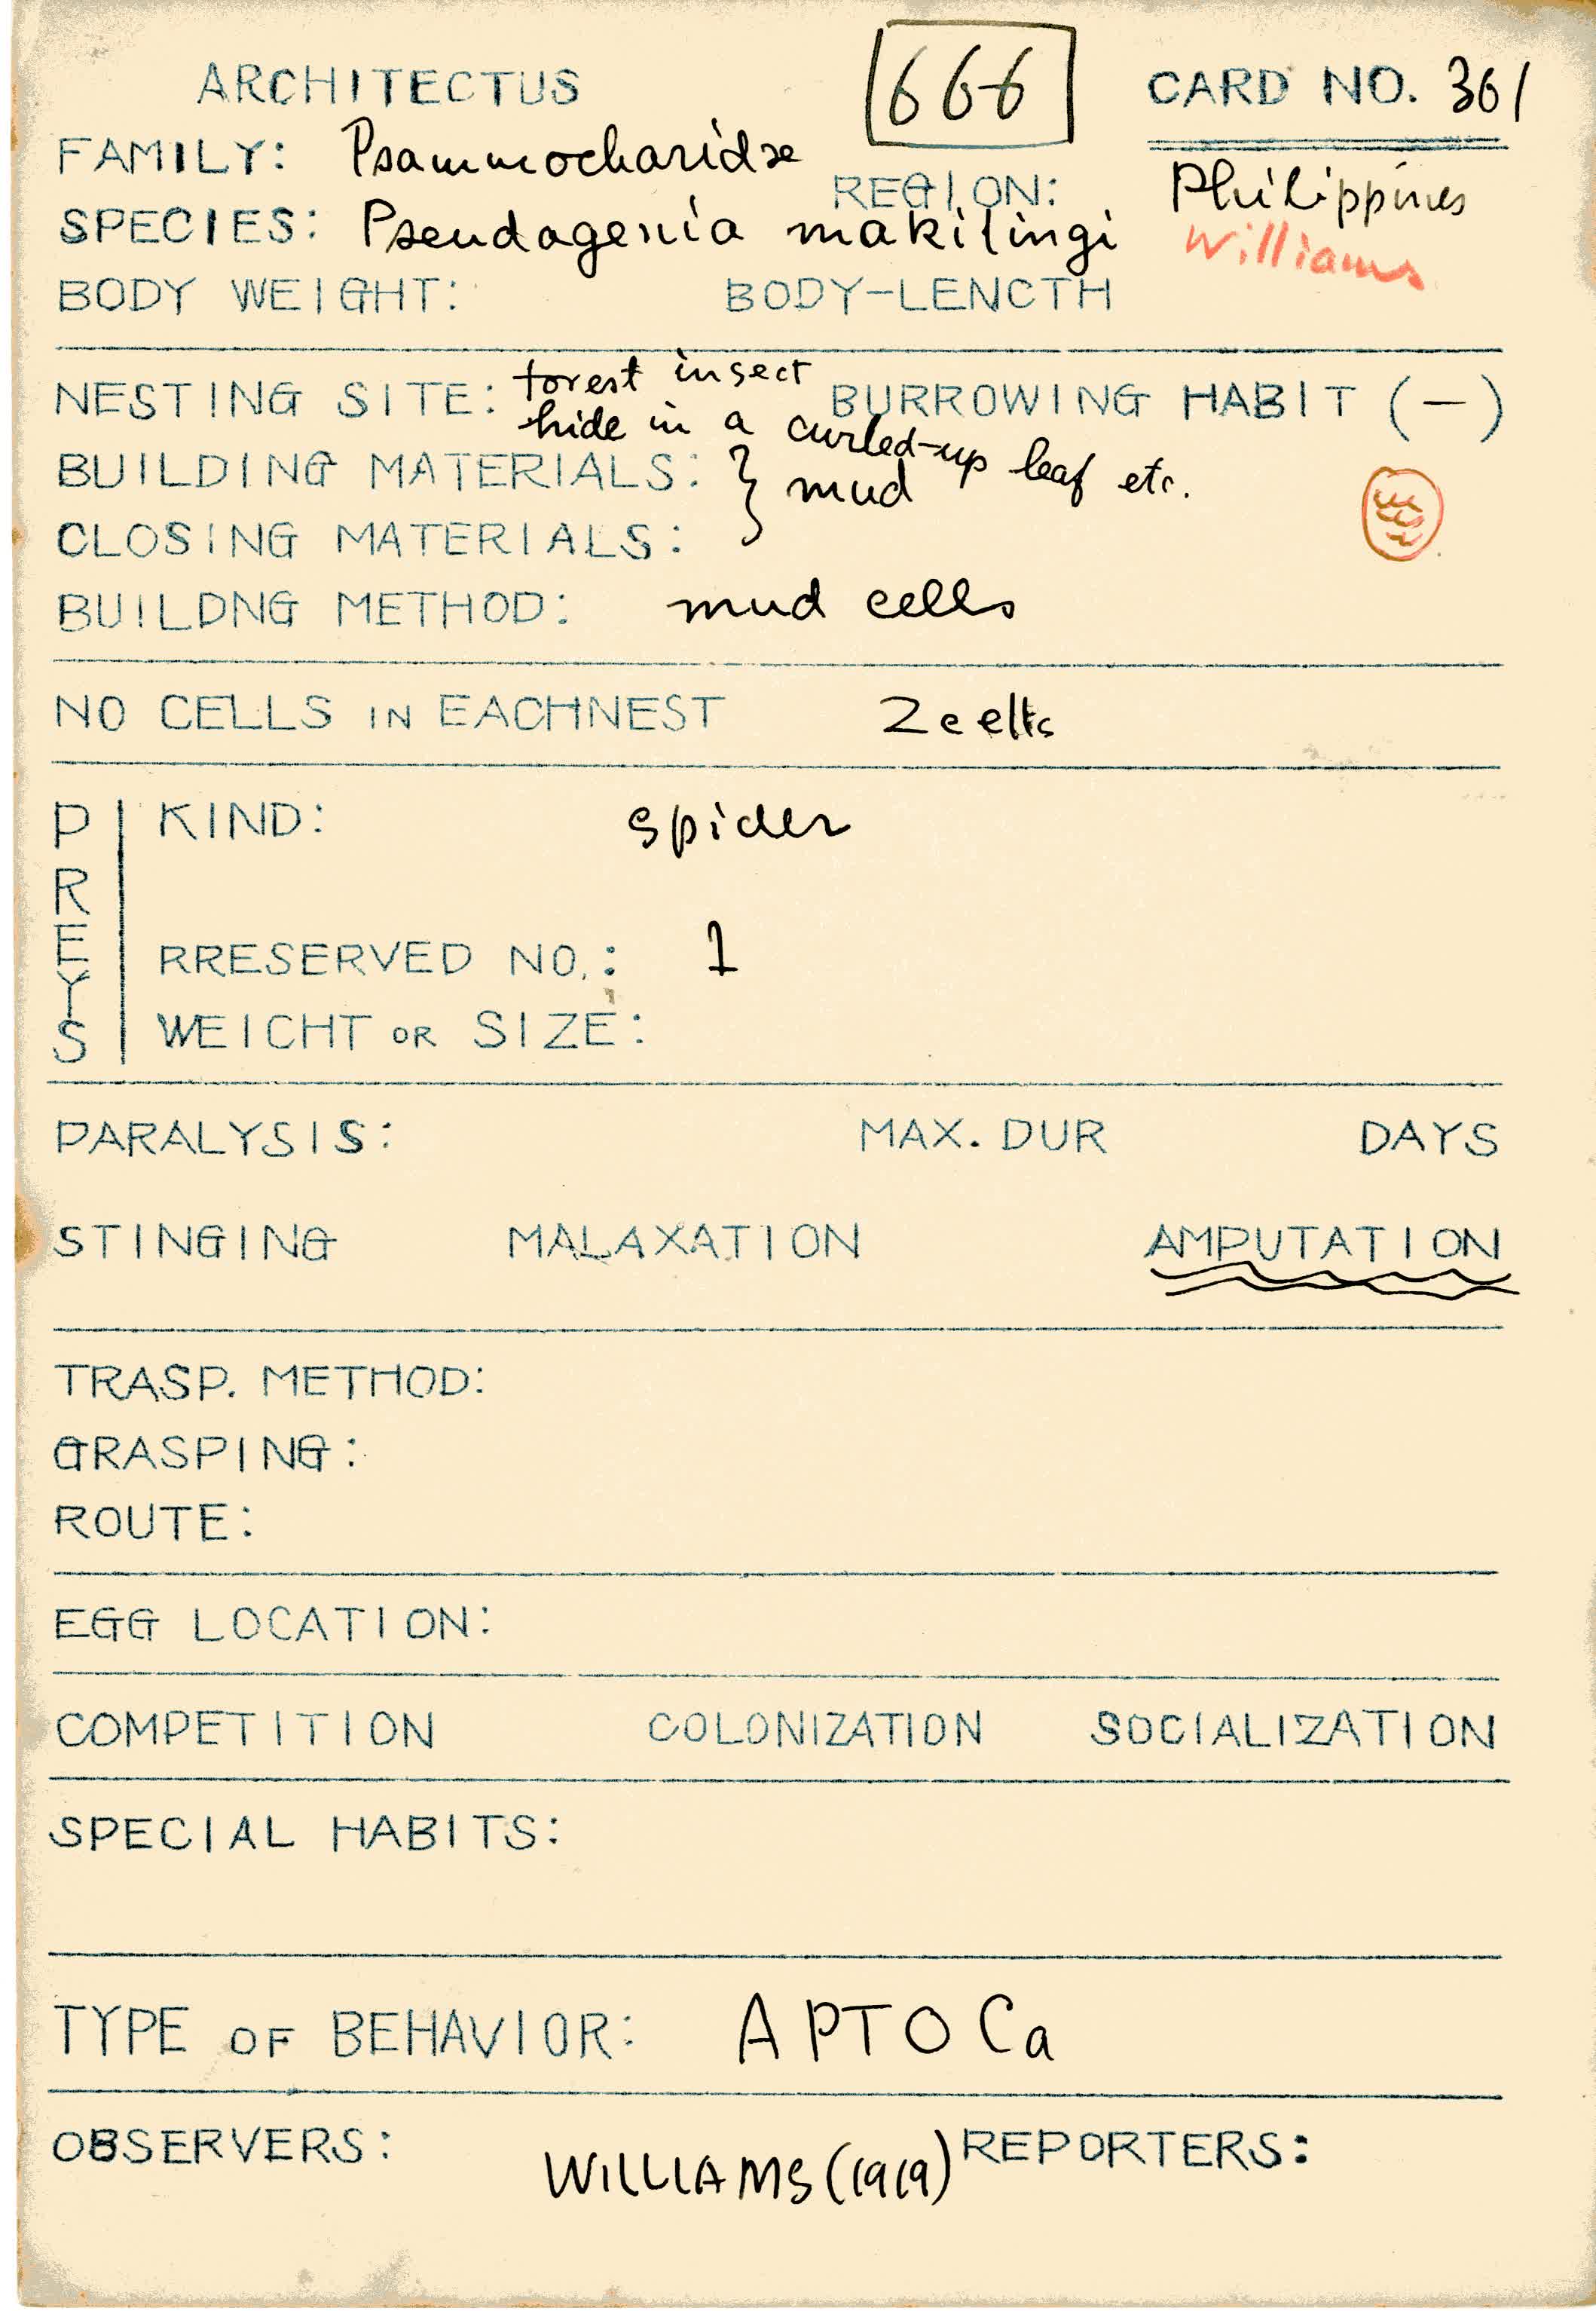 ARCHITECTUS 666 CARD NO. 361
FAMILY: Psammocharidae
REGION: Philippines
SPECIES: Pseudagenia makilingi Williams
BODY WEIGHT: BODY-LENCTH
NESTING SITE: forest insect BURROWING HABIT (-)
hide in a curled-up leaf etc.
BUILDING MATERIALS: } mud
CLOSING MATERIALS:
BUILDNG METHOD: mud cells
NO CELLS IN EACHNEST 2 cells
PREYS
KIND: spider
RRESERVED NO.: 1
WEICHT OR SIZE:
PARALYSIS: MAX. DUR DAYS
STINGING MALAXATION AMPUTATION
TRASP. METHOD:
GRASPING:
ROUTE:
EGG LOCATION:
COMPETITION COLONIZATION SOCIALIZATION
SPECIAL HABITS:
TYPE OF BEHAVIOR: APTOCa
OBSERVERS: WILLIAMS (1919) REPORTERS: